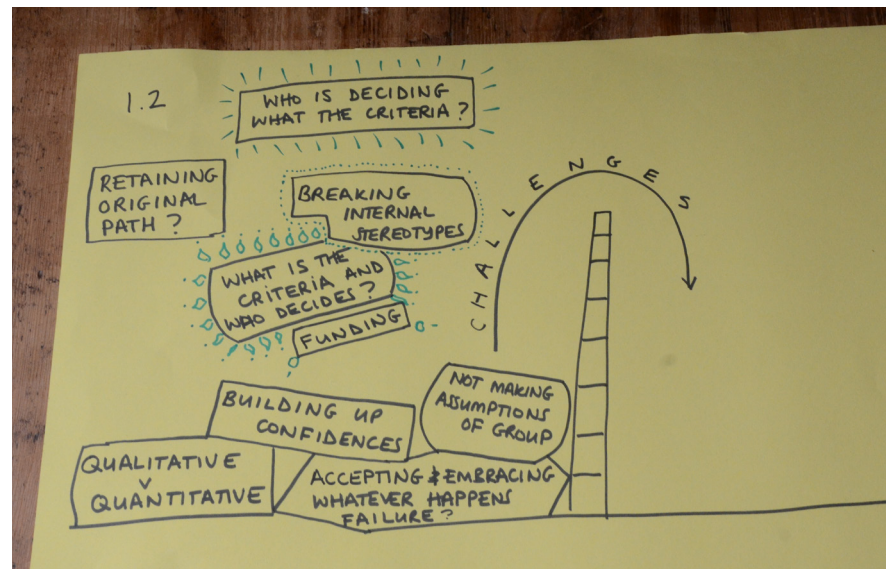 1.2
WHO IS DECIDING
WHAT THE CRITERIA?
RETAINING
ORIGINAL
PATH?
BREAKING
INTERNAL
STEREOTYPES
WHAT IS THE
CRITERIA AND
WHO DECIDES?
FUNDING
CHALLENGES
BUILDING UP
CONFIDENCES
NOT MAKING
ASSUMPTIONS
OF GROUP
QUALITATIVE
V
QUANTITATIVE
ACCEPTING & EMBRACING
WHATEVER HAPPENS
FAILURE?